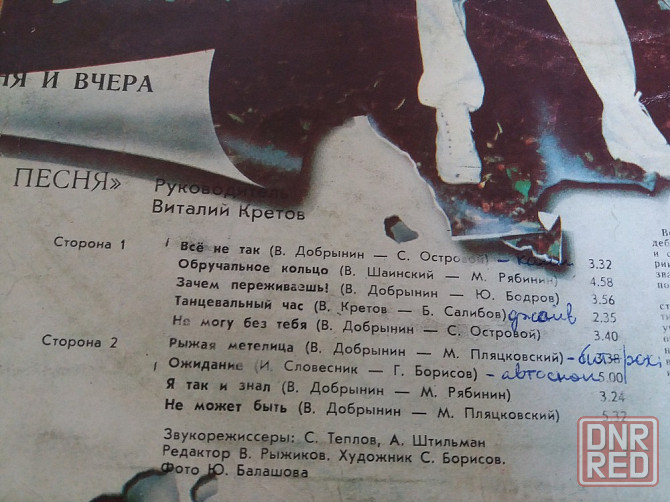 НЯ И ВЧЕРА
ПЕСНЯ»
Руководитель
Виталий Кретов
Сторона 1
Всё не так (В. Добрынин — С. Островой) – 3.32
Обручальное кольцо (В. Шаинский — М. Рябинин) 4.58
Зачем переживаешь! (В. Добрынин — Ю. Бодров) 3.56
Танцевальный час (В. Кретов — Б. Салибов) джайв 2.35
Не могу без тебя (В. Добрынин — С. Островой) 3.40
Сторона 2
Рыжая метелица (В. Добрынин — М. Пляцковский) – 3.38
Ожидание (И. Словесник — Г. Борисов) – 5.00
Я так и знал (В. Добрынин — М. Рябинин) 3.24
Не может быть (В. Добрынин — М. Пляцковский) 5.32
Звукорежиссеры: С. Теплов, А. Штильман
Редактор В. Рыжиков. Художник С. Борисов.
Фото Ю. Балашова
DNR
RED